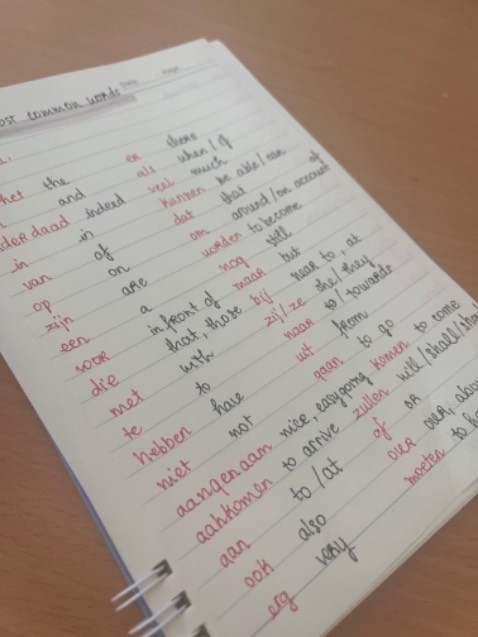 ost common words Date Page
het the er there
and als when/if
derdaad indeed veel much
in in kunnen be able/can
van of dat that
op on om around/on account of
zijn are worden to become
een a nog still
voor in front of maar but
die that, those bij near to, at
met with zij/ze she/they
te to naar to/towards
hebben have uit from
niet not gaan to go
aangenaam nice, easygoing komen to come
aankomen to arrive zullen will/shall/
aan to/at of or
ook also over over,
erg very moeten to